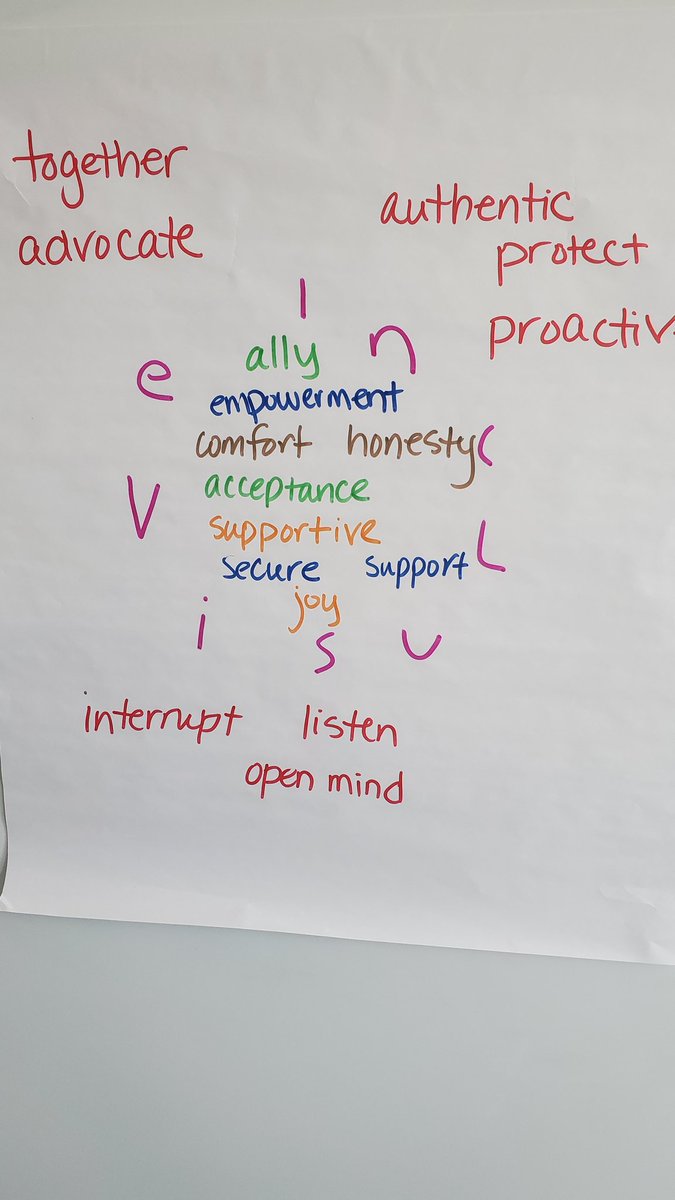 together
advocate
authentic
protect
proactiv
I n c L u s i V e
ally
empowerment
comfort honesty
acceptance
supportive
secure support
joy
interrupt listen
open mind